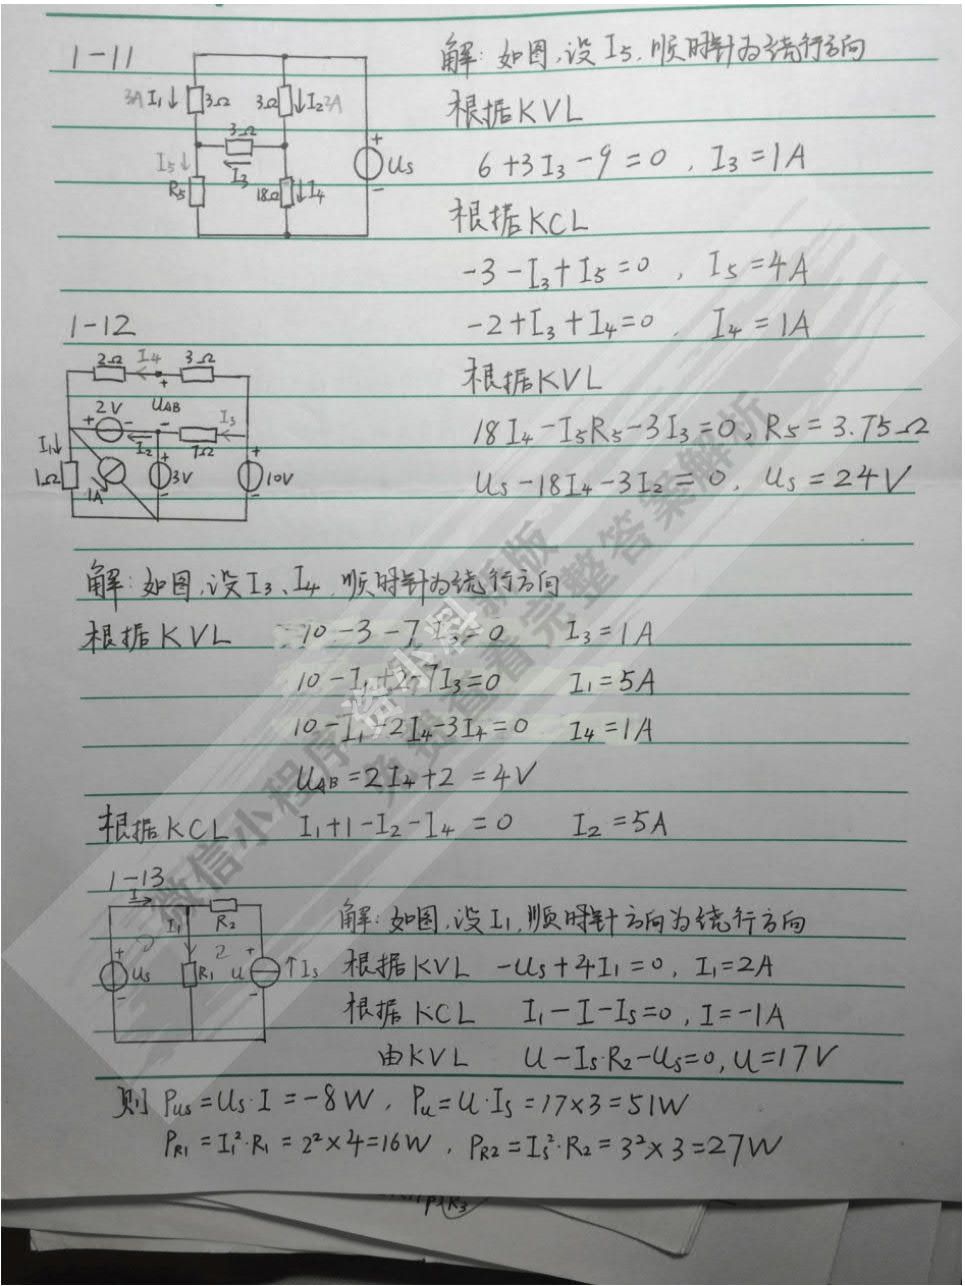 1-11
3A I₁↓ 3Ω 3Ω ↓I₂ 2A
3Ω
I₃
I₅↓
R₅ 18Ω ↓I₄
+
Us
-
解: 如图,设I₅,顺时针为绕行方向
根据KVL
6+3I₃-9=0 , I₃=1A
根据KCL
-3-I₃+I₅=0 , I₅=4A
-2+I₃+I₄=0 , I₄=1A
根据KVL
18I₄-I₅R₅-3I₃=0, R₅=3.75Ω
Us-18I₄-3I₂=0, Us=24V
1-12
2Ω I₄ 3Ω
+
2V UAB I₃
+ - -
I₁↓ I₂ 7Ω
1Ω + 3V - + 10V -
1A
解: 如图,设I₃、I₄,顺时针为绕行方向
根据KVL 10-3-7I₃=0 I₃=1A
10-I₁+2-7I₃=0 I₁=5A
10-I₁-2I₄-3I₄=0 I₄=1A
UAB=2I₄+2=4V
根据KCL I₁+1-I₂-I₄=0 I₂=5A
1-13
I
I₁ R₂
+ 2 +
Us R₁ u ↑Is
- -
解: 如图,设I₁,顺时针方向为绕行方向
根据KVL -Us+4I₁=0, I₁=2A
根据KCL I₁-I-Is=0, I=-1A
由KVL U-Is·R₂-Us=0, U=17V
则 Pus=Us·I=-8W, Pu=U·Is=17×3=51W
PR₁=I₁²·R₁=2²×4=16W, PR₂=Is²·R₂=3²×3=27W
微信小程序
免费查看完整答案解析